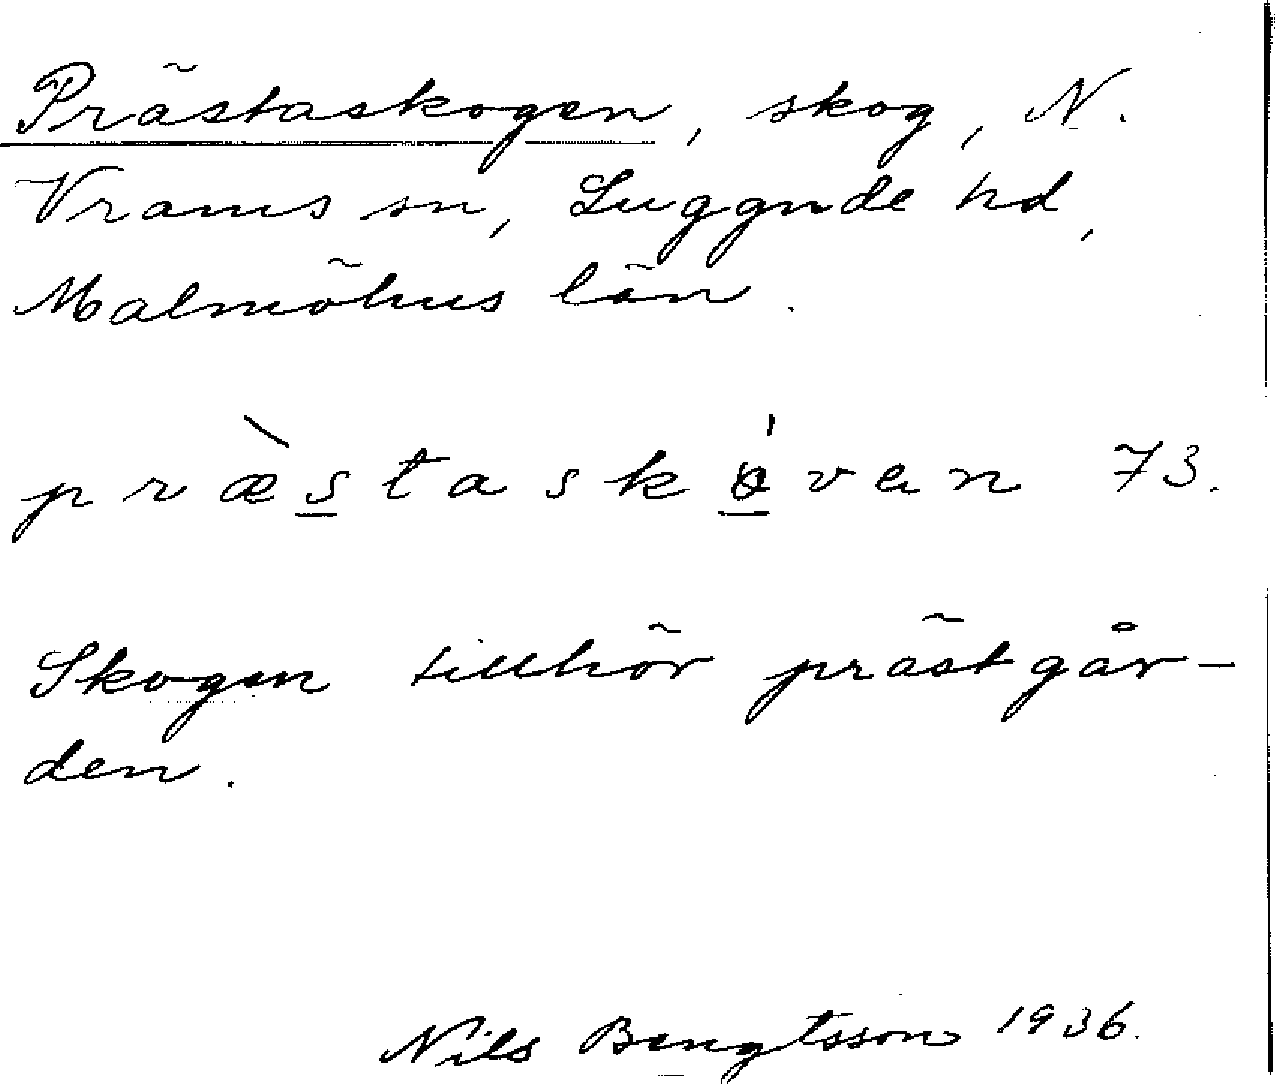 Prästaskogen, skog, N.
Vrams sn, Luggude hd,
Malmöhus län.
præ̀staskóvan 73.
Skogen tillhör prästgår-
den.
Nils Bengtsson 1936.